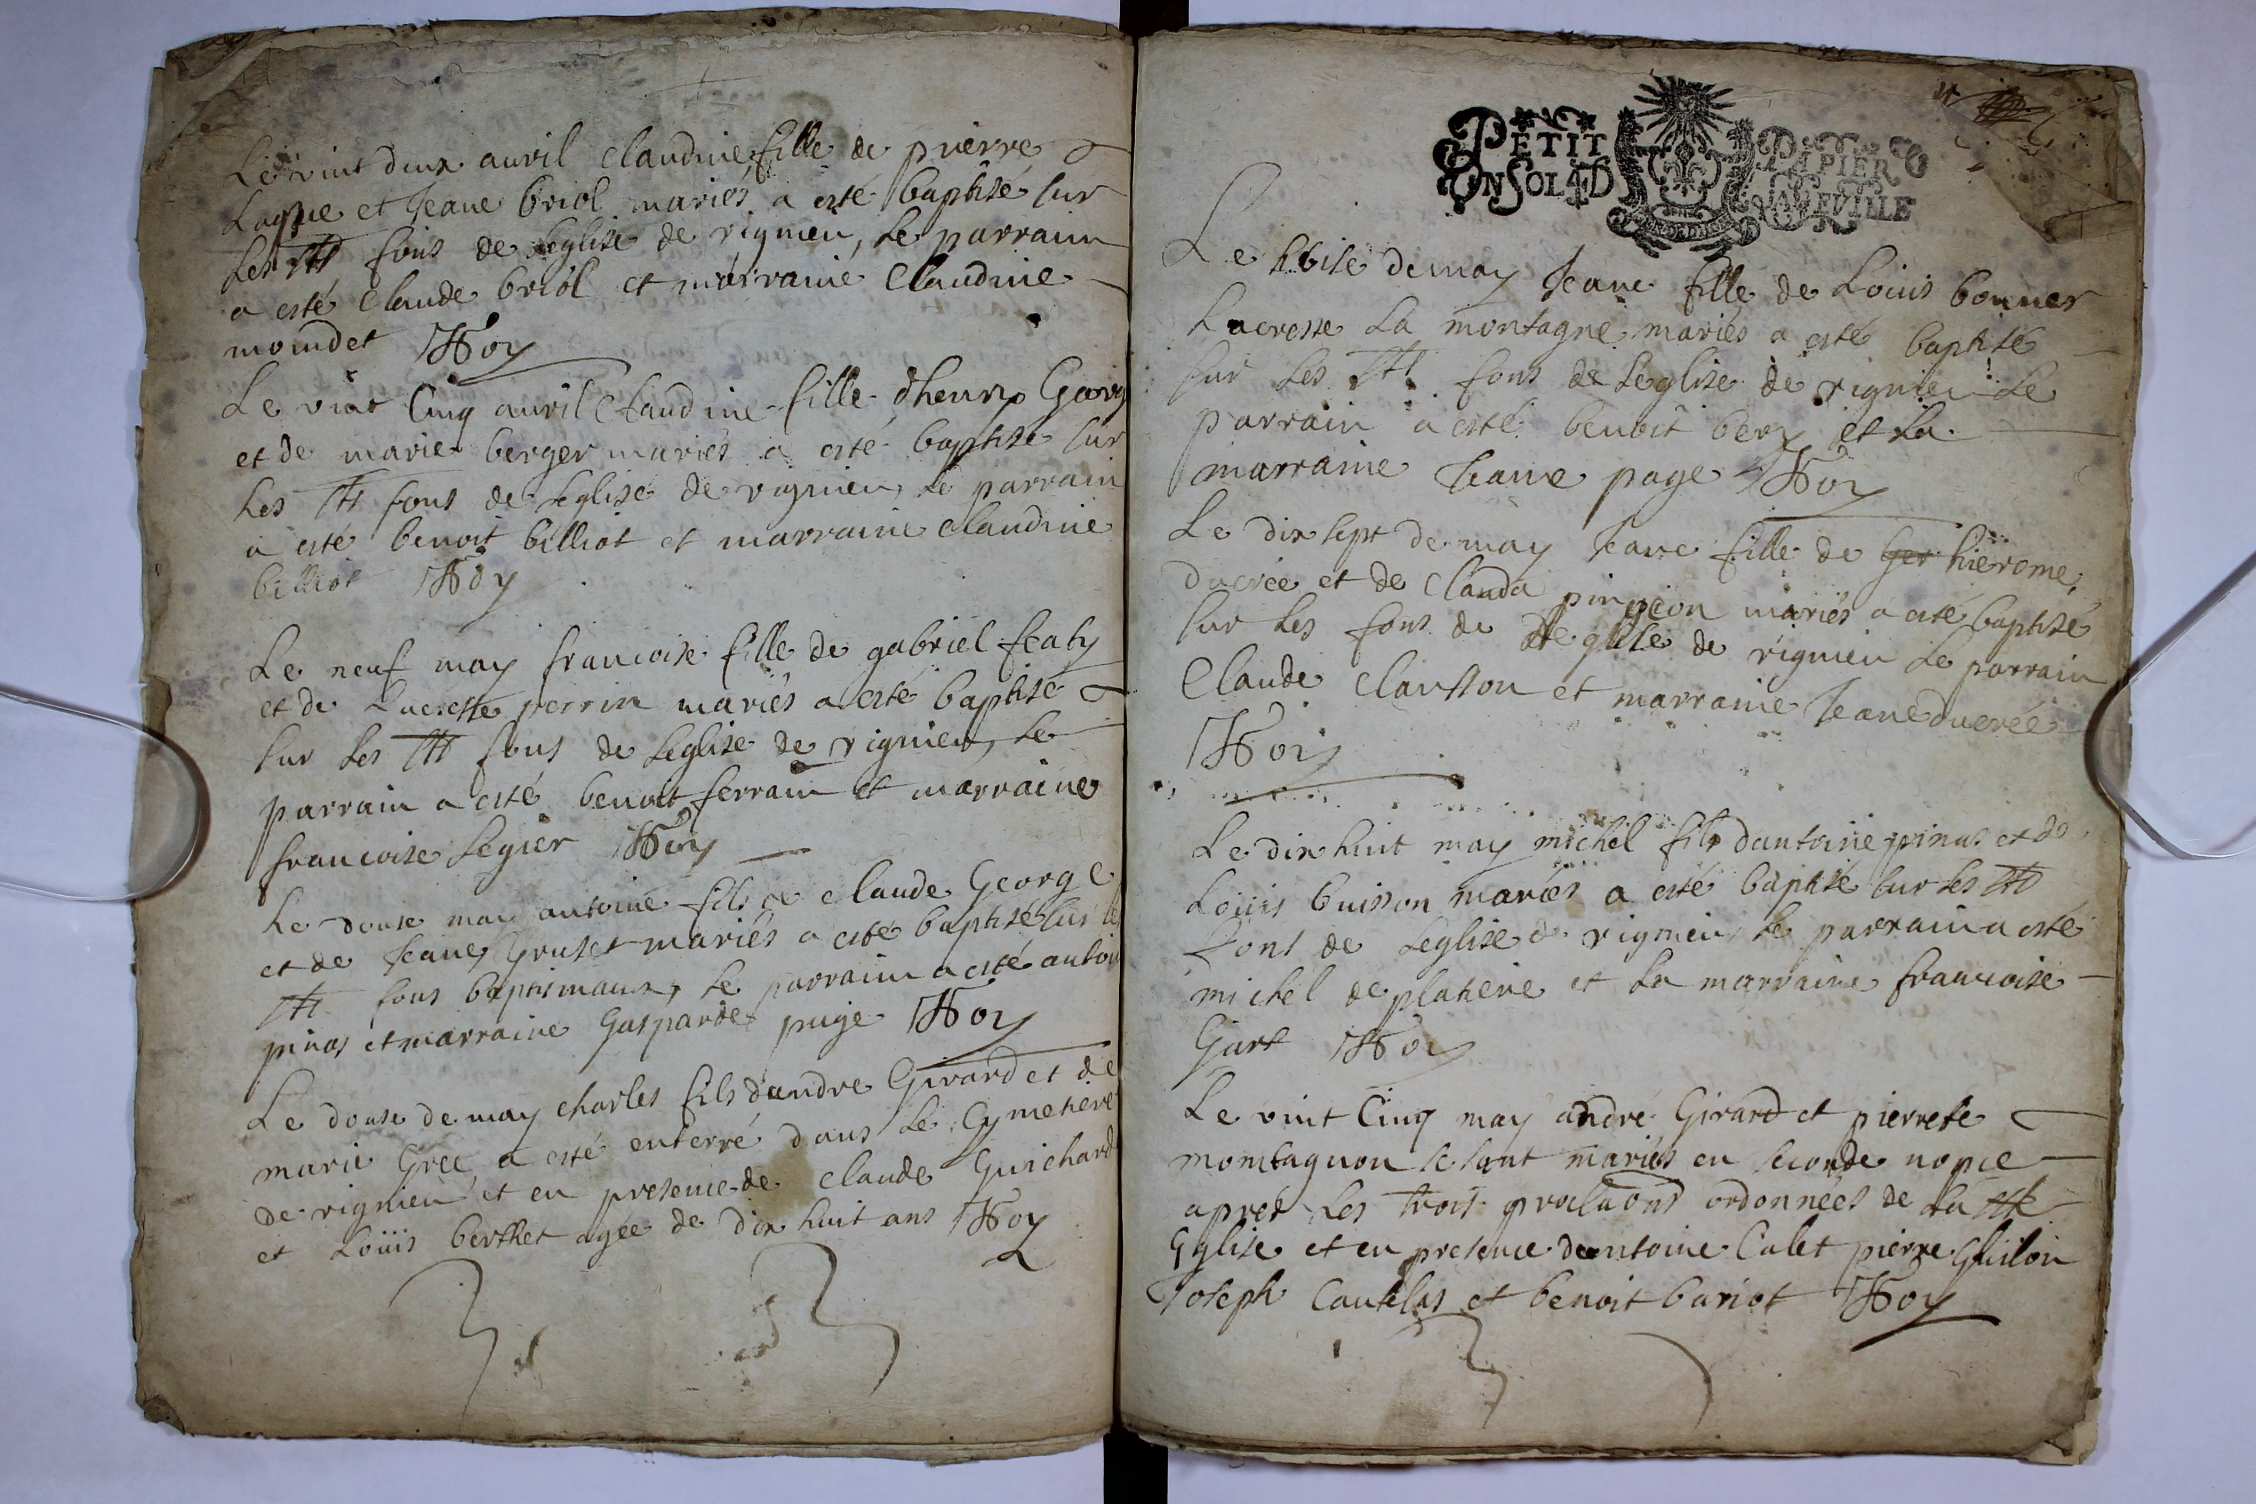 Le vint deux avril Claudine fille de pierre
Lagrue et Jeane briol mariés a esté baptisé sur
Les Sts fons de Leglise de rignieu, Le parrain
a esté Claude briol et marraine Claudine
moindet Roy
Le vint Cinq avril Claudine fille dhenry Georg
et de marie berger mariés a esté baptisé sur
Les Sts fons de Leglise de rignieu, Le parrain
a esté benoit billiot et marraine Claudine
billiot Roy
Le neuf may francoise fille de gabriel featy
et de Lucresse perrin mariés a esté baptisé
sur Les Sts fons de Leglise de rignieu, Le
parrain a esté benoit ferrain et marraine
francoise Legier Roy
Le douse may antoine fils de Claude George
et de Jeane Gruset mariés a esté baptisé sur les
Sts fons baptismaux, Le parrain a esté antoi
pinas et marraine Gasparde puge Roy
Le douse de may charles fils dandre Girard et de
marie Gree a esté enterré dans Le Cymetiere
de rignieu et en presence de Claude Guichard
et Loüis berthet agée de dix huit ans Roy
PETIT PAPIER
EN SOL 4 D LA FEUILLE
Le de may Jeane fille de Loüis bonner
Lucresse La montagne mariés a esté baptisé
sur Les Sts fons de Leglise de rignieu Le
parrain a esté benoit bery et La
marraine Jeane page Roy
Le dix sept de may Jeane fille de Ger hierome
ducrée et de Clauda pingeon mariés a esté baptisé
sur Les fons de Leglise de rignieu Le parrain
Claude Clausson et marraine Jeane ducrée
Roy
Le dix huit may michel fils dantoine pinas et de
Loüis buisson mariés a esté baptisé sur Les Sts
fons de Leglise de rignieu Le parrain a esté
michel de platiere et La marraine francoise
Roy
Le vint Cinq may andré Girard et pierrete
montagnon se sont mariés en seconde nopce
apres Les trois proclaons ordonnées de La Ste
Eglise et en presence dantoine Calet pierre Guilon
Joseph Cautelas et benoit bariot Roy